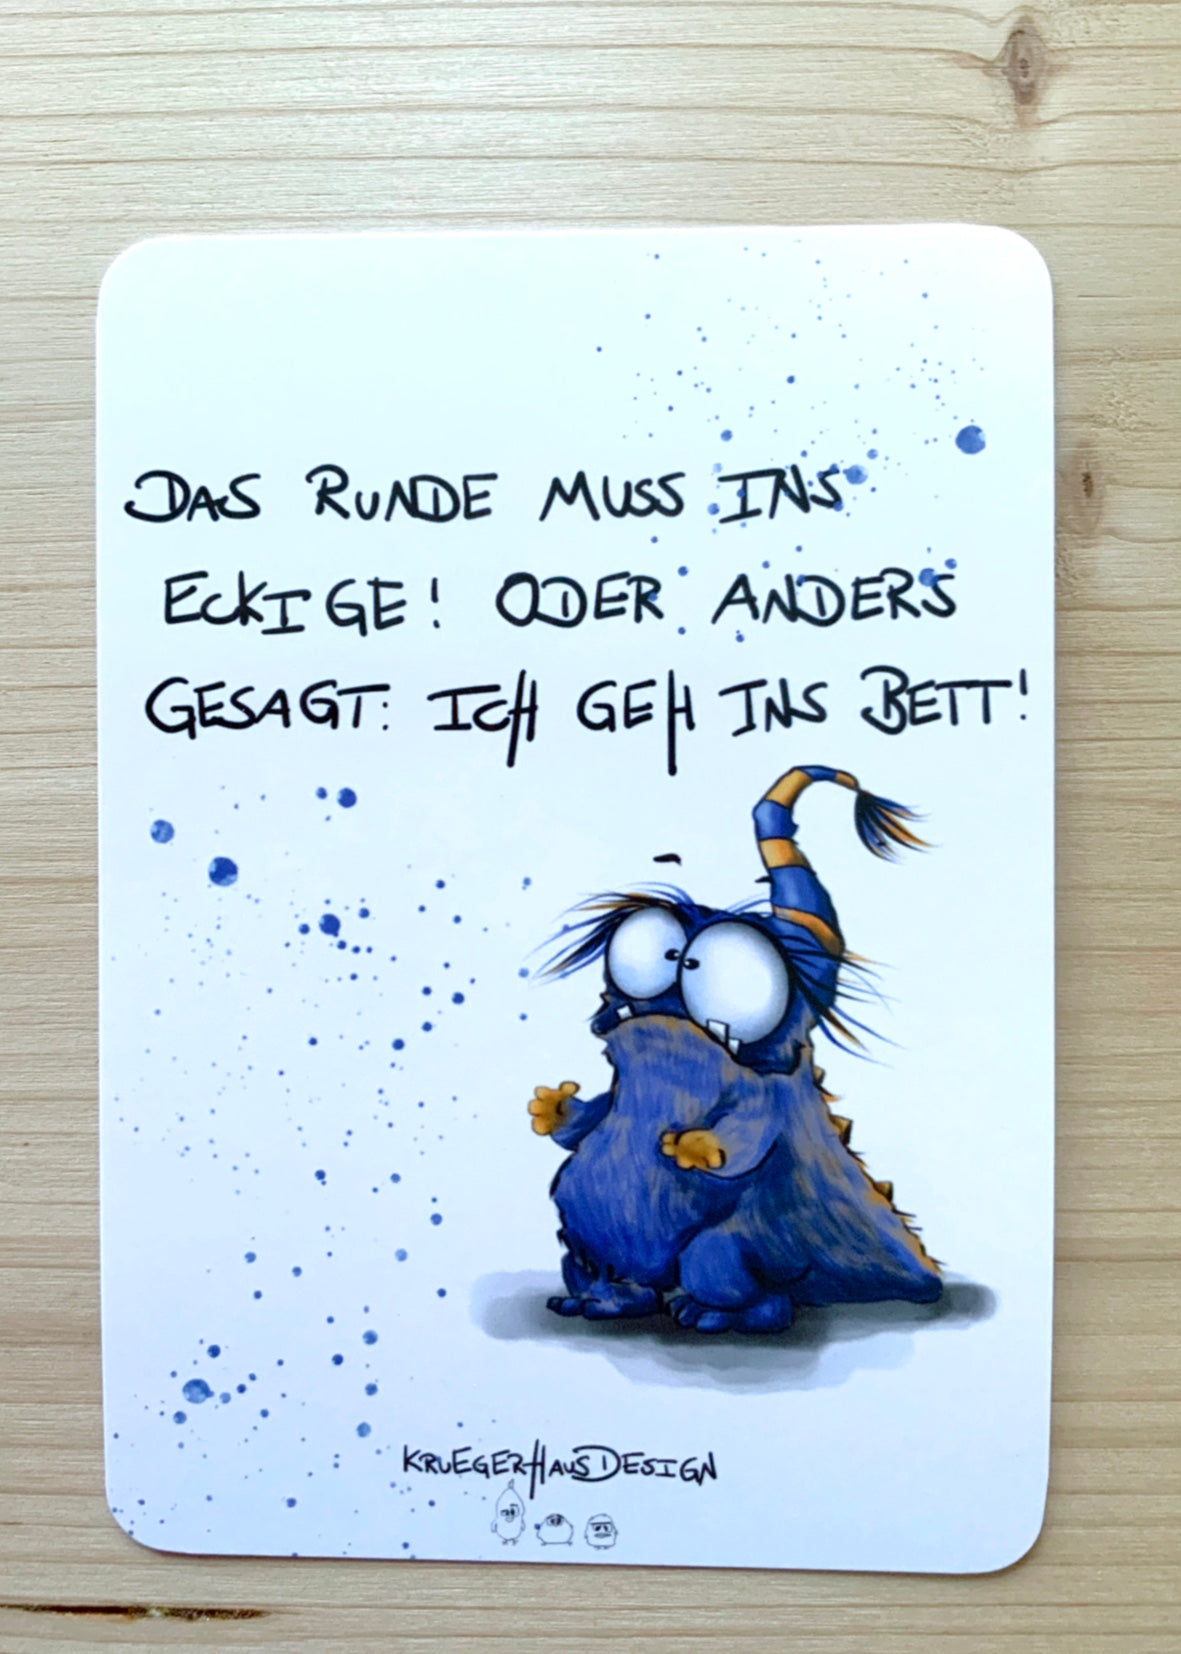 DAS RUNDE MUSS INS
ECKIGE! ODER ANDERS
GESAGT: ICH GEH INS BETT!
KRUEGERHAUSDESIGN